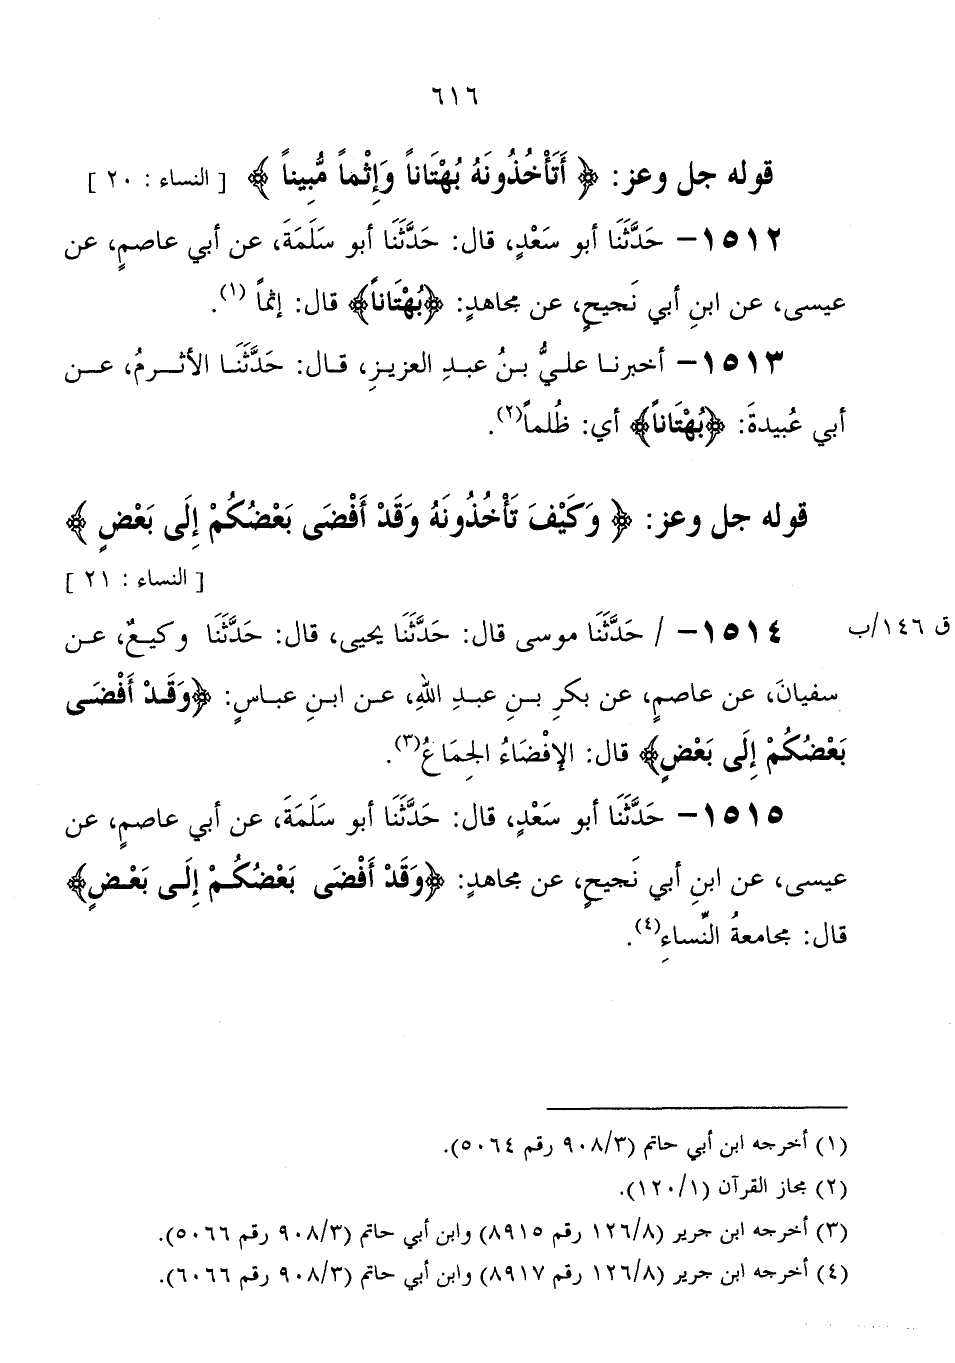 ٦١٦
قوله جل وعز: ﴿ أَتَأْخُذُونَهُ بُهْتَاناً وَإِثْماً مُّبِيناً ﴾ [ النساء : ٢٠ ]
١٥١٢– حَدَّثَنَا أبو سَعْدٍ، قال: حَدَّثَنَا أبو سَلَمَةَ، عن أبي عاصمٍ، عن
عيسى، عن ابنِ أبي نَجيحٍ، عن مجاهدٍ: ﴿بُهْتَاناً﴾ قال: إثماً (١).
١٥١٣– أخبرنا عليُّ بنُ عبدِ العزيزِ، قال: حَدَّثَنَا الأثرمُ، عن
أبي عُبيدةَ: ﴿بُهْتَاناً﴾ أي: ظُلماً(٢).
قوله جل وعز: ﴿ وَكَيْفَ تَأْخُذُونَهُ وَقَدْ أَفْضَى بَعْضُكُمْ إِلَى بَعْضٍ ﴾
[ النساء : ٢١ ]
١٥١٤– / حَدَّثَنَا موسى قال: حَدَّثَنَا يحيى، قال: حَدَّثَنَا وكيعٌ، عن
ق ١٤٦/ب
سفيانَ، عن عاصمٍ، عن بكرِ بنِ عبدِ اللهِ، عن ابنِ عباسٍ: ﴿وَقَدْ أَفْضَى
بَعْضُكُمْ إِلَى بَعْضٍ﴾ قال: الإفْضَاءُ الجِمَاعُ(٣).
١٥١٥– حَدَّثَنَا أبو سَعْدٍ، قال: حَدَّثَنَا أبو سَلَمَةَ، عن أبي عاصمٍ، عن
عيسى، عن ابنِ أبي نَجيحٍ، عن مجاهدٍ: ﴿وَقَدْ أَفْضَى بَعْضُكُمْ إِلَى بَعْضٍ﴾
قال: مجامعةُ النِّساءِ(٤).
(١) أخرجه ابن أبي حاتم (٩٠٨/٣ رقم ٥٠٦٤).
(٢) مجاز القرآن (١٢٠/١).
(٣) أخرجه ابن جرير (١٢٦/٨ رقم ٨٩١٥) وابن أبي حاتم (٩٠٨/٣ رقم ٥٠٦٦).
(٤) أخرجه ابن جرير (١٢٦/٨ رقم ٨٩١٧) وابن أبي حاتم (٩٠٨/٣ رقم ٦٠٦٦).